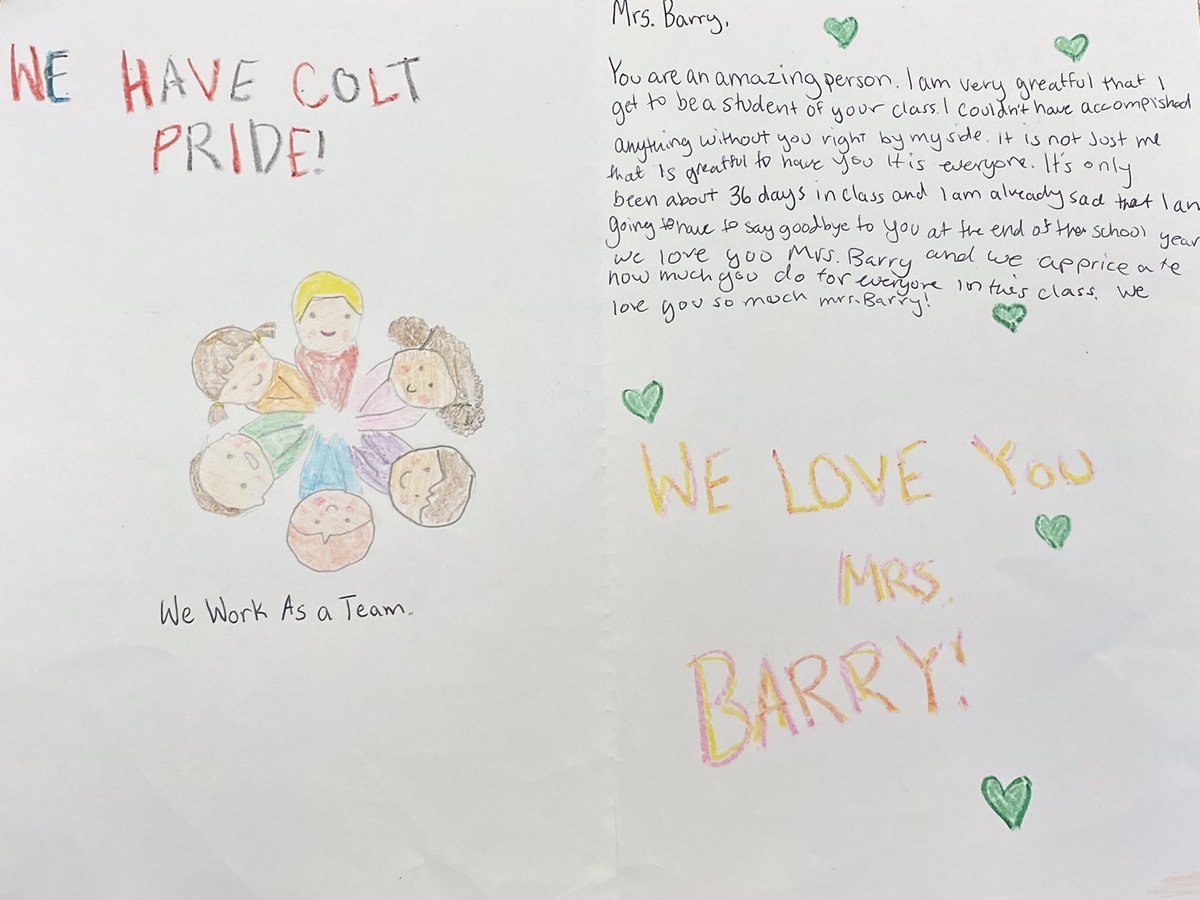 WE HAVE COLT
PRIDE!
We Work As a Team.
Mrs. Barry,
You are an amazing person. I am very greatful that I
get to be a student of your class. I couldn't have accomplished
anything without you right by my side. It is not Just me
that is greatful to have you It is everyone. It's only
been about 36 days in class and I am already sad that I am
going to have to say goodbye to you at the end of the school year
We love you Mrs. Barry and we appriceate
how much you do for everyone in this class. We
love you so much mrs. Barry!
WE LOVE YOU
MRS.
BARRY!